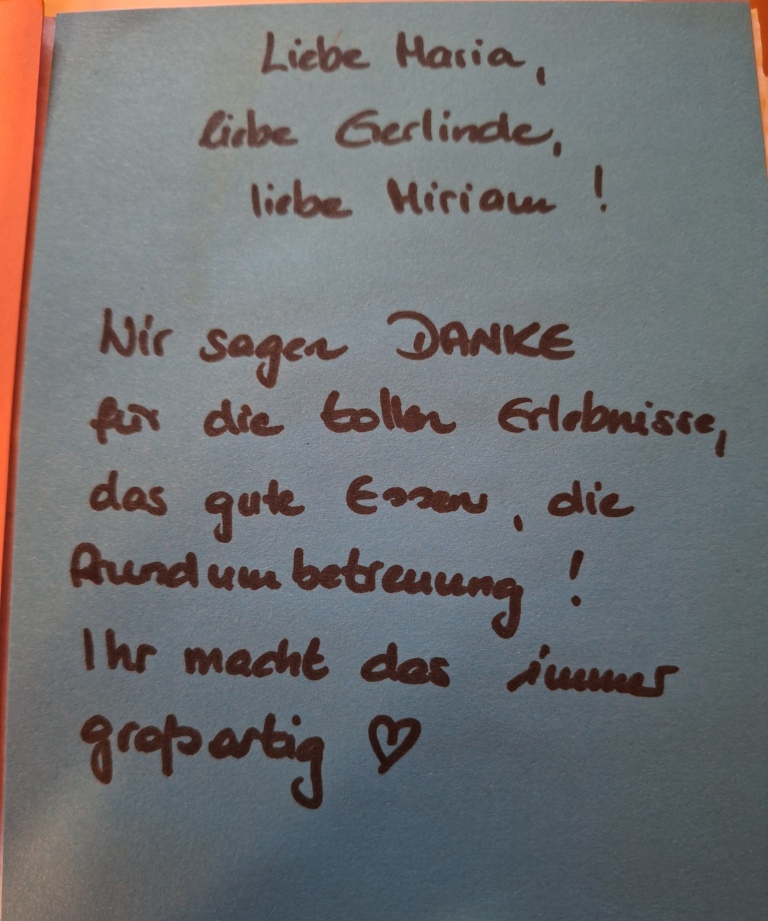 Liebe Maria,
liebe Gerlinde,
liebe Miriam !
Wir sagen DANKE
für die tollen Erlebnisse,
das gute Essen, die
Rundumbetreuung !
Ihr macht das immer
großartig ♡